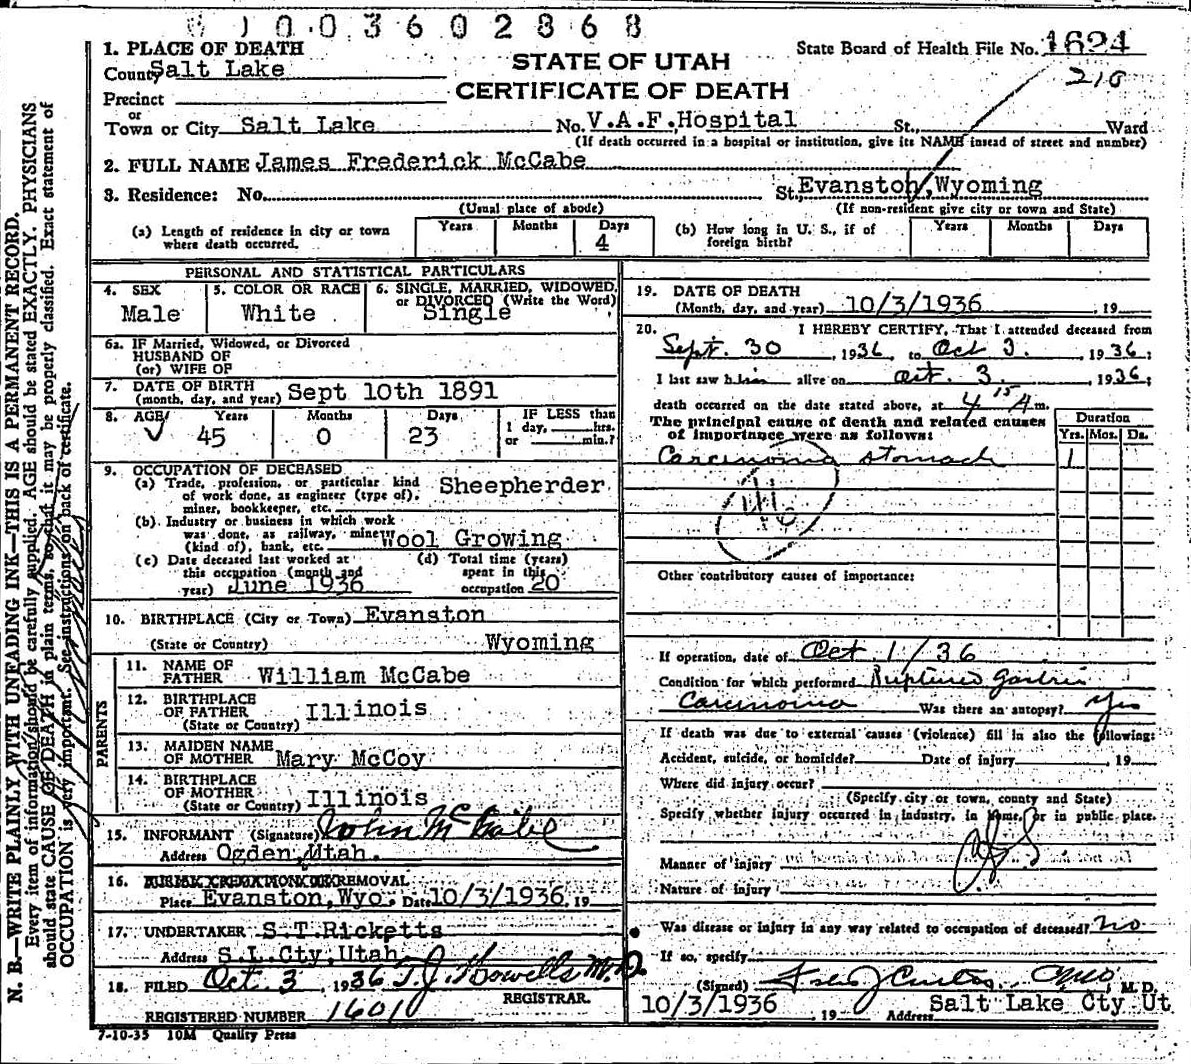 0 0 3 6 0 2 8 6 8
1. PLACE OF DEATH
County Salt Lake
STATE OF UTAH
CERTIFICATE OF DEATH
State Board of Health File No. 1624
210
Precinct
or
Town or City Salt Lake No. V.A.F. Hospital St., Ward
(If death occurred in a hospital or institution, give its NAME instead of street and number)
2. FULL NAME James Frederick McCabe
3. Residence: No. St. Evanston, Wyoming
(Usual place of abode) (If non-resident give city or town and State)
(a) Length of residence in city or town where death occurred. Years Months Days 4
(b) How long in U. S., if of foreign birth? Years Months Days
PERSONAL AND STATISTICAL PARTICULARS
4. SEX Male
5. COLOR OR RACE White
6. SINGLE, MARRIED, WIDOWED, or DIVORCED (Write the Word) Single
6a. IF Married, Widowed, or Divorced
HUSBAND OF
(or) WIFE OF
7. DATE OF BIRTH
(month, day, and year) Sept 10th 1891
8. AGE Years Months Days IF LESS than
45 0 23 1 day, hrs.
or min.?
9. OCCUPATION OF DECEASED
(a) Trade, profession, or particular kind
of work done, as engineer (type of),
miner, bookkeeper, etc. Sheepherder
(b) Industry or business in which work
was done, as railway, mine
(kind of), bank, etc. Wool Growing
(c) Date deceased last worked at
this occupation (month and
year) June 1936
(d) Total time (years)
spent in this
occupation 20
10. BIRTHPLACE (City or Town) Evanston
(State or Country) Wyoming
PARENTS
11. NAME OF
FATHER William McCabe
12. BIRTHPLACE
OF FATHER Illinois
(State or Country)
13. MAIDEN NAME
OF MOTHER Mary McCoy
14. BIRTHPLACE
OF MOTHER
(State or Country) Illinois
15. INFORMANT (Signature) John McCabe
Address Ogden, Utah.
16. REMOVAL
Place Evanston, Wyo. Date 10/3/1936, 19
17. UNDERTAKER S.T.Ricketts
Address S.L.Cty, Utah
18. FILED Oct 3, 1936 T. J. Howells M.D.
REGISTRAR.
REGISTERED NUMBER 1601
7-10-35 10M Quality Press
19. DATE OF DEATH
(Month, day, and year) 10/3/1936, 19
20. I HEREBY CERTIFY, That I attended deceased from
Sept. 30, 1936, to Oct 3., 1936;
I last saw him alive on Oct. 3, 1936;
death occurred on the date stated above, at 4 15 A m.
The principal cause of death and related causes
of importance were as follows:
Duration
Yrs. Mos. Ds.
Carcinoma stomach 1
46
Other contributory causes of importance:
If operation, date of Oct 1/36
Condition for which performed Ruptured Gastric
Carcinoma Was there an autopsy? Yes
If death was due to external causes (violence) fill in also the following:
Accident, suicide, or homicide? Date of injury, 19
Where did injury occur?
(Specify city or town, county and State)
Specify whether injury occurred in industry, in home, or in public place.
Manner of injury
Nature of injury
Was disease or injury in any way related to occupation of deceased? no
If so, specify
(Signed) Curtis, M. D.
10/3/1936, 19 Address Salt Lake Cty Ut
N. B.—WRITE PLAINLY WITH UNFADING INK—THIS IS A PERMANENT RECORD.
Every item of information should be carefully supplied. AGE should be stated EXACTLY. PHYSICIANS
should state CAUSE OF DEATH in plain terms, so that it may be properly classified. Exact statement of
OCCUPATION is very important. See instructions on back of certificate.